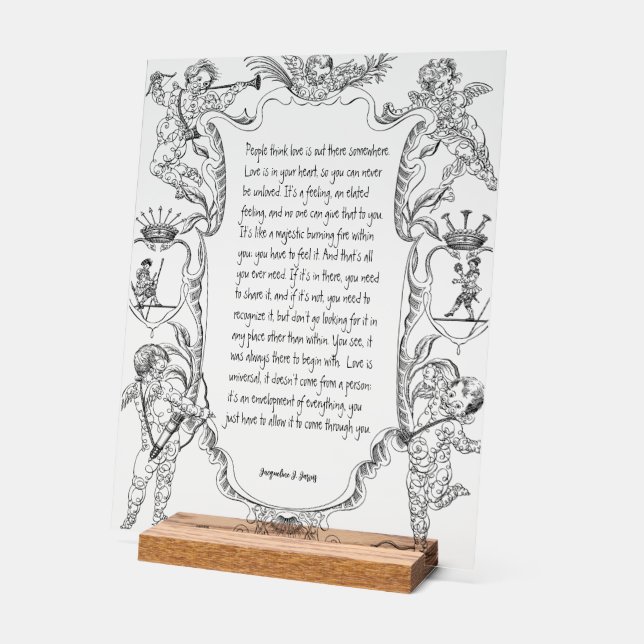 People think love is out there somewhere.
Love is in your heart, so you can never
be unloved. It's a feeling, an elated
feeling, and no one can give that to you.
It's like a majestic burning fire within
you; you have to feel it. And that's all
you ever need. If it's in there, you need
to share it, and if it's not, you need to
recognize it, but don't go looking for it in
any place other than within. You see, it
was always there to begin with. Love is
universal, it doesn't come from a person;
it's an envelopment of everything, you
just have to allow it to come through you.
Jacqueline J.